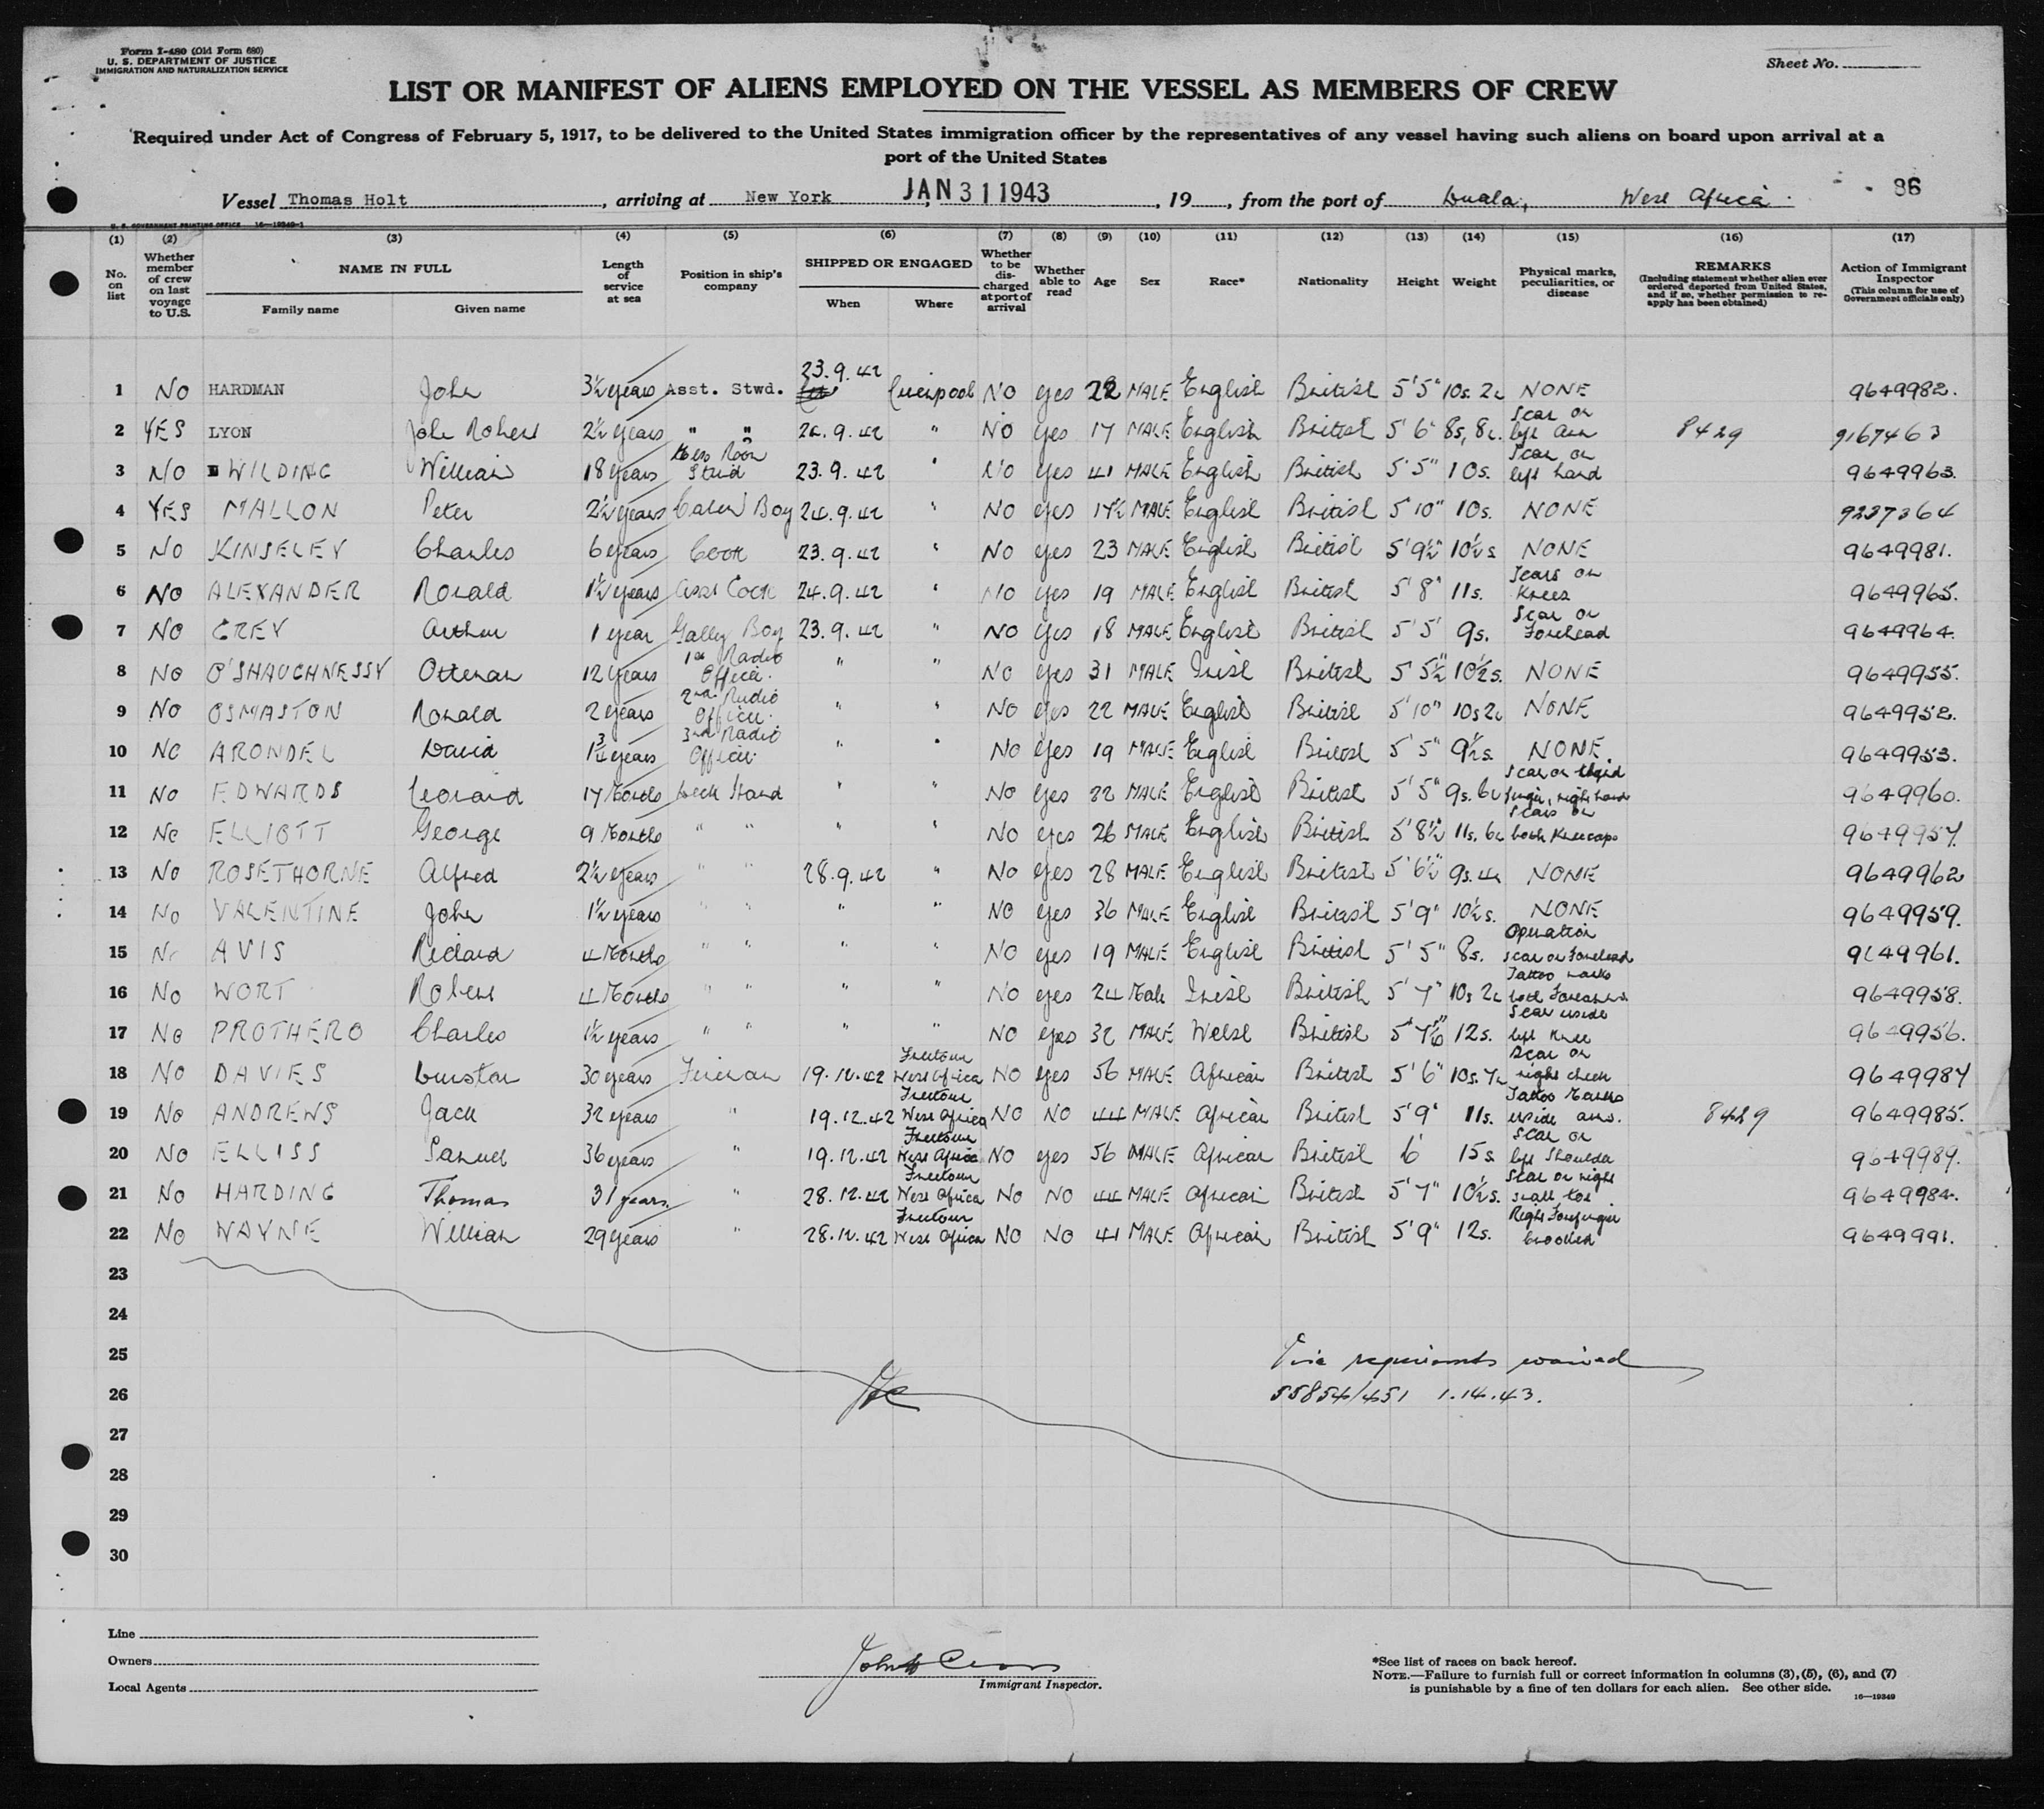 Form I-480 (Old Form 680)
U. S. DEPARTMENT OF JUSTICE
IMMIGRATION AND NATURALIZATION SERVICE
Sheet No.
LIST OR MANIFEST OF ALIENS EMPLOYED ON THE VESSEL AS MEMBERS OF CREW
Required under Act of Congress of February 5, 1917, to be delivered to the United States immigration officer by the representatives of any vessel having such aliens on board upon arrival at a
port of the United States
Vessel Thomas Holt, arriving at New York JAN 31 1943, 19, from the port of Duala, West Africa. 86
U. S. GOVERNMENT PRINTING OFFICE 16—19349-1
(1) (2) (3) (4) (5) (6) (7) (8) (9) (10) (11) (12) (13) (14) (15) (16) (17)
No. on list
Whether member of crew on last voyage to U.S.
NAME IN FULL
Family name Given name
Length of service at sea
Position in ship's company
SHIPPED OR ENGAGED
When Where
Whether to be discharged at port of arrival
Whether able to read
Age Sex Race* Nationality Height Weight
Physical marks, peculiarities, or disease
REMARKS
(Including statement whether alien ever ordered deported from United States, and if so, whether permission to re-apply has been obtained)
Action of Immigrant Inspector
(This column for use of Government officials only)
1 NO HARDMAN John 3½ years Asst. Stwd. 23.9.42 Liverpool NO yes 22 MALE English British 5'5" 10s. 2 NONE 9649982.
2 YES LYON John Robert 2½ years " " 24.9.42 " NO yes 17 MALE English British 5'6" 8s, 8 Scar on left arm 8429 9167463
3 NO WILDING William 18 years Mess Room Stwd 23.9.42 " NO yes 41 MALE English British 5'5" 10s. Scar on left hand 9649963.
4 YES MALLON Peter 2½ years Cabin Boy 24.9.42 " NO yes 17½ MALE English British 5'10" 10s. NONE 9237364
5 NO KINSELEY Charles 6 years Cook 23.9.42 " NO yes 23 MALE English British 5'9½" 10½s NONE 9649981.
6 NO ALEXANDER Ronald 1½ years Asst Cook 24.9.42 " NO yes 19 MALE English British 5'8" 11s. Scars on Knees 9649965.
7 NO GREY Arthur 1 year Gally Boy 23.9.42 " NO yes 18 MALE English British 5'5' 9s. Scar on Forehead 9649964.
8 NO O'SHAUGHNESSY Otteran 12 years 1st Radio Officer. " " NO yes 31 MALE Irish British 5'5½" 10½s. NONE 9649955.
9 NO OSMASTON Ronald 2 years 2nd Radio Officer. " " NO yes 22 MALE English British 5'10" 10s 2 NONE 9649952.
10 NO ARONDEL David 1¾ years 3rd Radio Officer. " " NO yes 19 MALE English British 5'5" 9½s. NONE 9649953.
11 NO EDWARDS Leonard 17 Months Deck Hand " " NO yes 22 MALE English British 5'5" 9s. 6 Scar on third finger, right hand 9649960.
12 NO ELLIOTT George 9 Months " " " " NO yes 26 MALE English British 5'8½" 11s. 6 Scars on both Kneecaps 9649957.
13 NO ROSETHORNE Alfred 2½ years " " 28.9.42 " NO yes 28 MALE English British 5'6½" 9s. 4 NONE 9649962
14 NO VALENTINE John 1½ years " " " " NO yes 36 MALE English British 5'9" 10½s. NONE 9649959.
15 No AVIS Richard 4 Months " " " " NO yes 19 MALE English British 5'5" 8s. Operation scar on Forehead 9649961.
16 NO WORT Robert 4 Months " " " " NO yes 24 Male Irish British 5'7" 10s 2 Tattoo marks both Forearms 9649958.
17 NO PROTHERO Charles 1½ years " " " " NO yes 32 MALE Welsh British 5'7½" 12s. Scar inside left Knee 9649956.
18 NO DAVIES Dunstan 30 years Fireman 19.12.42 Freetown West Africa NO yes 56 MALE African British 5'6" 10s. 7 Scar on right cheek 9649987
19 NO ANDREWS Jack 32 years " 19.12.42 Freetown West Africa NO NO 44 MALE African British 5'9" 11s. Tattoo Marks inside arms. 8429 9649985.
20 NO ELLISS Samuel 36 years " 19.12.42 Freetown West Africa NO yes 56 MALE African British 6' 15s Scar on left Shoulder 9649989.
21 NO HARDING Thomas 31 years. " 28.12.42 Freetown West Africa NO NO 44 MALE African British 5'7" 10½s. Scar on right small toe 9649984.
22 NO WAYNE William 29 years " 28.12.42 Freetown West Africa NO NO 41 MALE African British 5'9" 12s. Right Forefinger Crooked 9649991.
23
24
25 Visa requirements waived
26 55854/451 1.14.43.
27
28
29
30
Line
Owners
Local Agents
Immigrant Inspector.
*See list of races on back hereof.
NOTE.—Failure to furnish full or correct information in columns (3), (5), (6), and (7)
is punishable by a fine of ten dollars for each alien. See other side.
16—19349